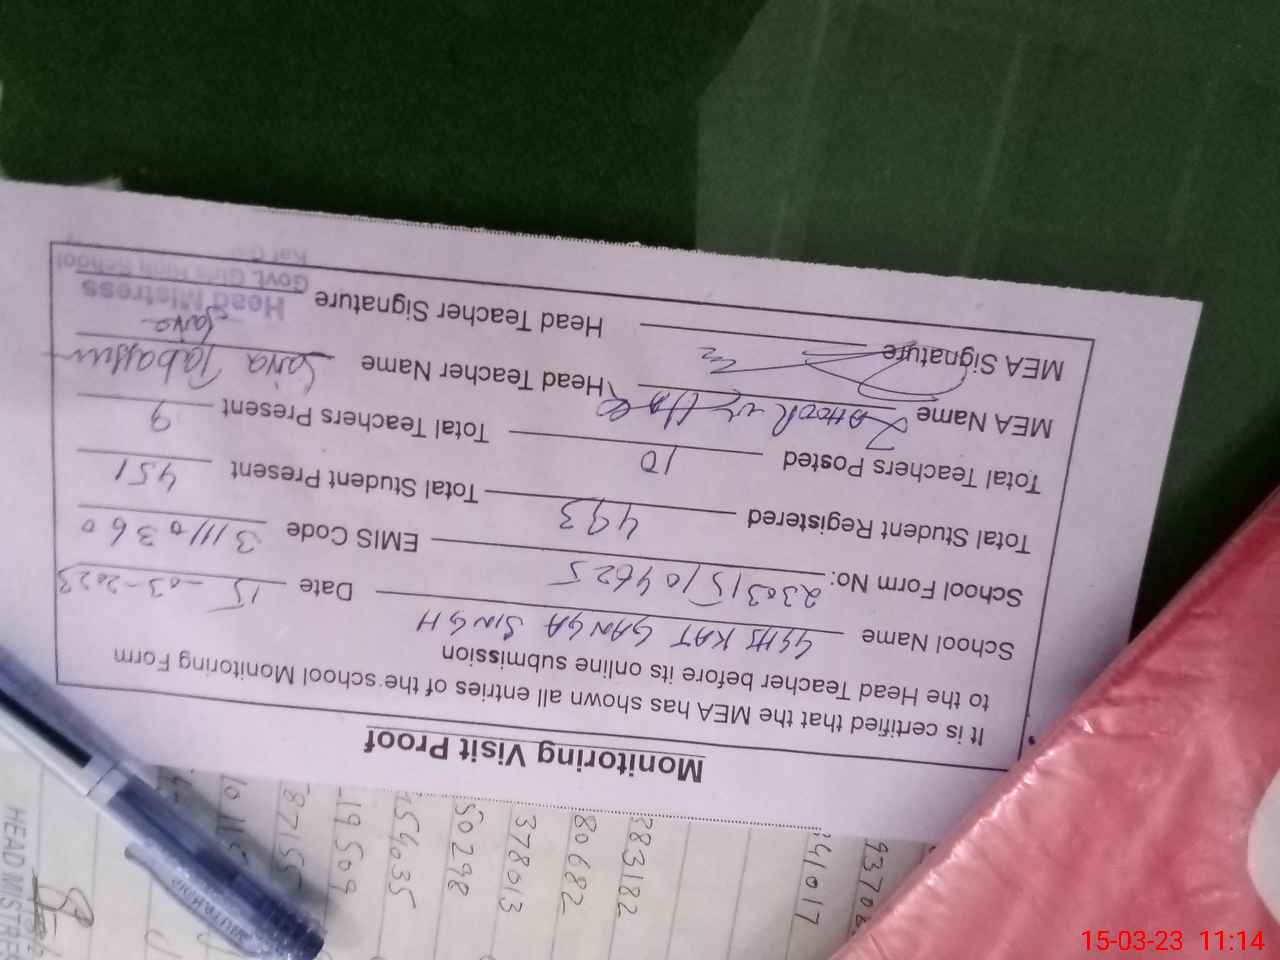 Monitoring Visit Proof
It is certified that the MEA has shown all entries of the school Monitoring Form
to the Head Teacher before its online submission
School Name GGHS KAT GANGA SINGH Date 15-03-2023
School Form No: 230315104625 EMIS Code 31110360
Total Student Registered 493 Total Student Present 451
Total Teachers Posted 10 Total Teachers Present 9
MEA Name Head Teacher Name Saiva Tabassum
MEA Signature Head Teacher Signature
Head Mistress
Govt. Girls High School
383182
80682
378013
50298
54035
19509
87155
93708
41017
HEAD MISTRES
15-03-23 11:14